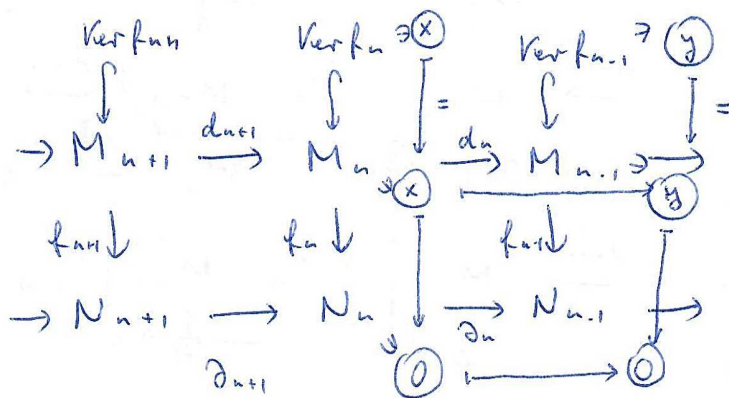 Ker fn+1 Ker fn ∋ x Ker fn-1 ∋ y
=  =
→ Mn+1 dn+1 → Mn dn → Mn-1 →
x y
fn+1 ↓ fn ↓ fn-1 ↓
→ Nn+1 → Nn → Nn-1 →
∂n+1 0 ∂n 0